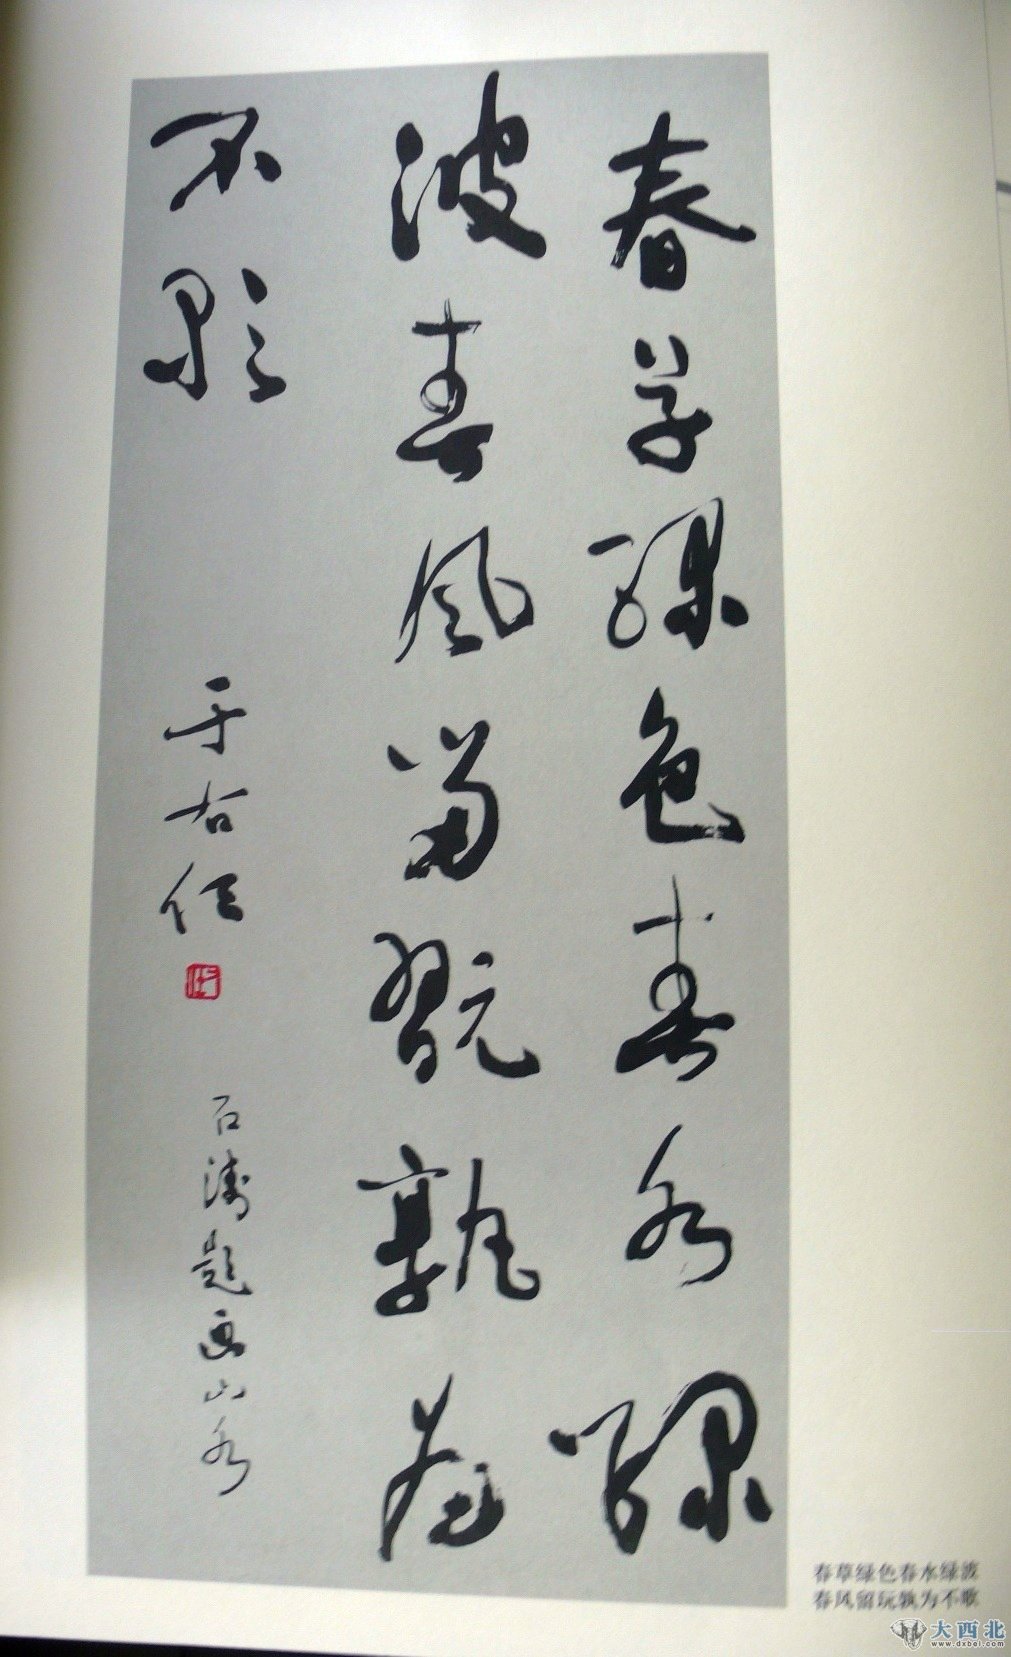 春草碌色春水騄
波春风留翫孰为
不歌
于右任
石涛题画山水
春草绿色春水绿波
春风留玩孰为不歌
大西北
www.dxbei.com